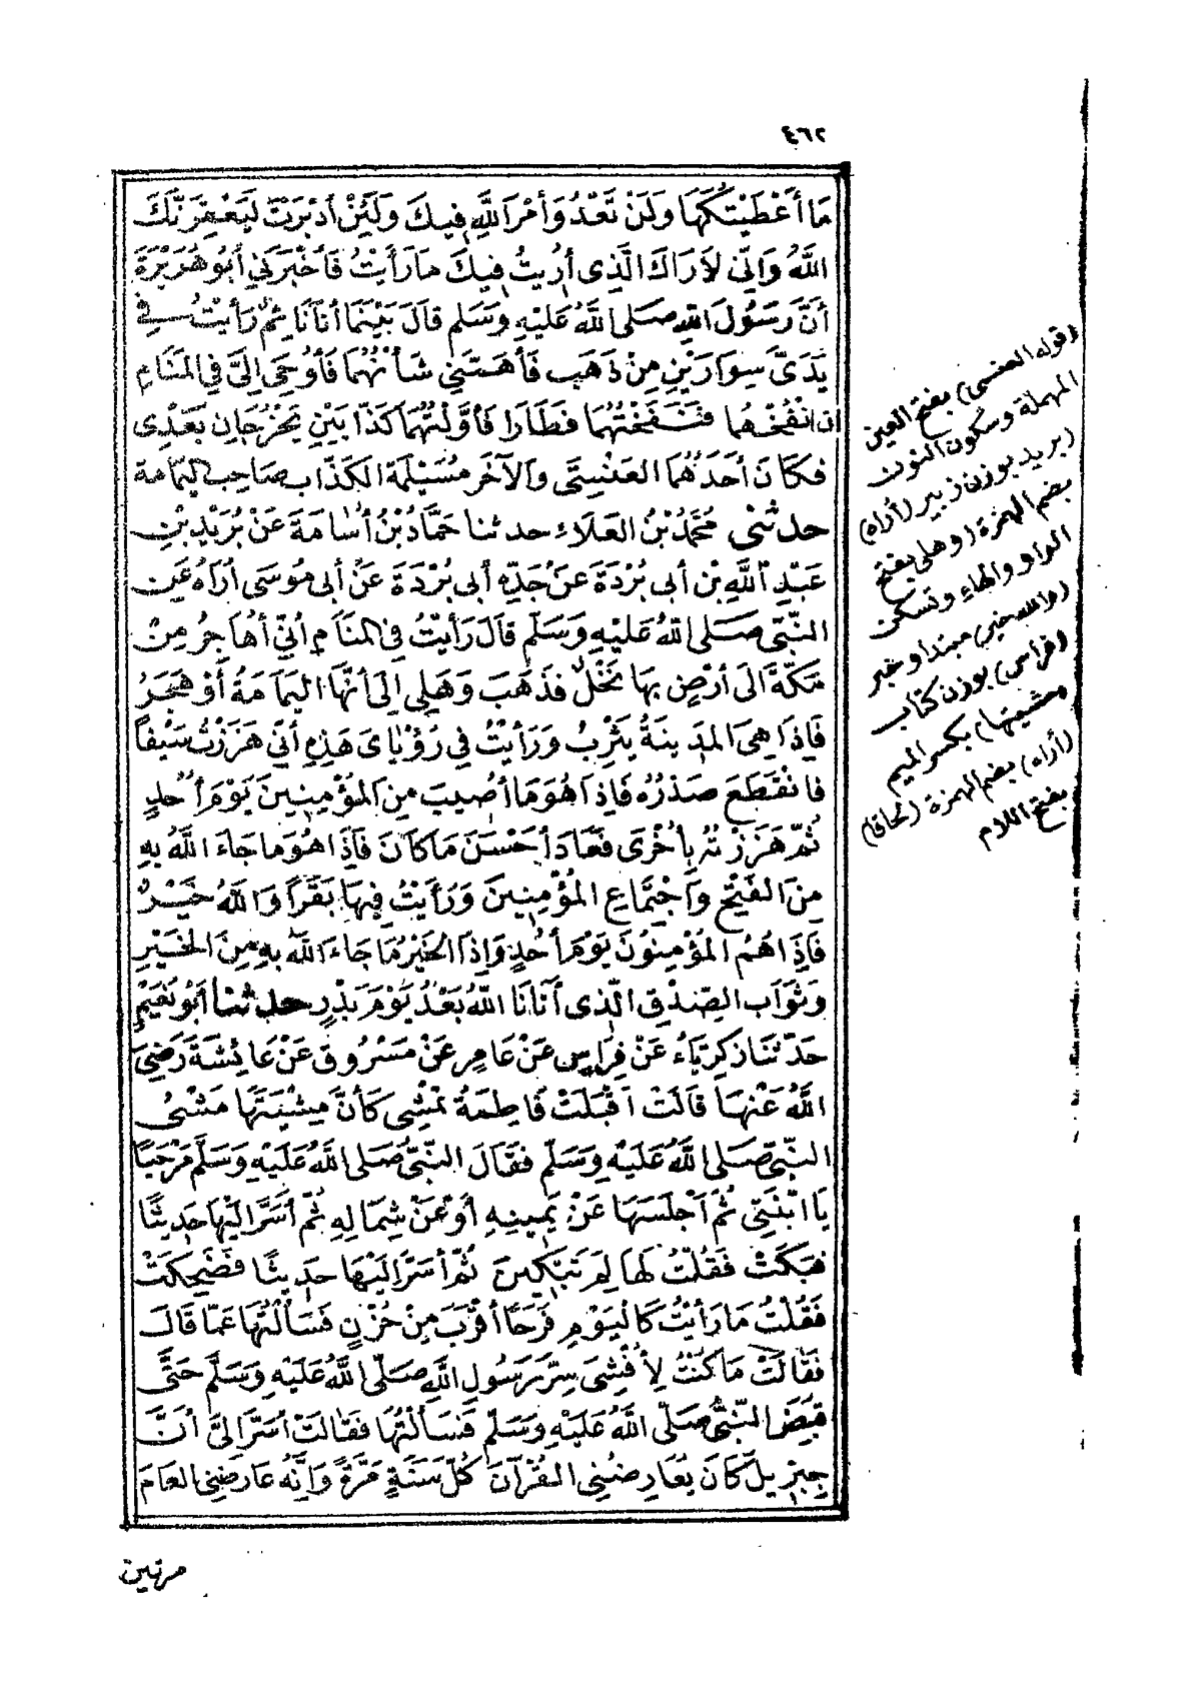 ٤٦٢
مَا أَعْطَيْتُكَهَا وَلَنْ تَعْدُوَ أَمْرَ اللَّهِ فِيكَ وَلَئِنْ أَدْبَرْتَ لَيَعْقِرَنَّكَ
اللَّهُ وَإِنِّي لَأَرَاكَ الَّذِي أُرِيتُ فِيكَ مَا رَأَيْتُ فَأَخْبَرَنِي أَبُو هُرَيْرَةَ
أَنَّ رَسُولَ اللَّهِ صَلَّى اللَّهُ عَلَيْهِ وَسَلَّمَ قَالَ بَيْنَمَا أَنَا نَائِمٌ رَأَيْتُ فِي
يَدَيَّ سِوَارَيْنِ مِنْ ذَهَبٍ فَأَهَمَّنِي شَأْنُهُمَا فَأُوحِيَ إِلَيَّ فِي الْمَنَامِ
أَنِ انْفُخْهُمَا فَنَفَخْتُهُمَا فَطَارَا فَأَوَّلْتُهُمَا كَذَّابَيْنِ يَخْرُجَانِ بَعْدِي
فَكَانَ أَحَدُهُمَا الْعَنْسِيَّ وَالْآخَرُ مُسَيْلِمَةَ الْكَذَّابَ صَاحِبَ الْيَمَامَةِ
حدثني مُحَمَّدُ بْنُ الْعَلَاءِ حدثنا حَمَّادُ بْنُ أُسَامَةَ عَنْ بُرَيْدِ بْنِ
عَبْدِ اللَّهِ بْنِ أَبِي بُرْدَةَ عَنْ جَدِّهِ أَبِي بُرْدَةَ عَنْ أَبِي مُوسَى أُرَاهُ عَنِ
النَّبِيِّ صَلَّى اللَّهُ عَلَيْهِ وَسَلَّمَ قَالَ رَأَيْتُ فِي الْمَنَامِ أَنِّي أُهَاجِرُ مِنْ
مَكَّةَ إِلَى أَرْضٍ بِهَا نَخْلٌ فَذَهَبَ وَهَلِي إِلَى أَنَّهَا الْيَمَامَةُ أَوْ هَجَرُ
فَإِذَا هِيَ الْمَدِينَةُ يَثْرِبُ وَرَأَيْتُ فِي رُؤْيَايَ هَذِهِ أَنِّي هَزَزْتُ سَيْفًا
فَانْقَطَعَ صَدْرُهُ فَإِذَا هُوَ مَا أُصِيبَ مِنَ الْمُؤْمِنِينَ يَوْمَ أُحُدٍ
ثُمَّ هَزَزْتُهُ بِأُخْرَى فَعَادَ أَحْسَنَ مَا كَانَ فَإِذَا هُوَ مَا جَاءَ اللَّهُ بِهِ
مِنَ الْفَتْحِ وَاجْتِمَاعِ الْمُؤْمِنِينَ وَرَأَيْتُ فِيهَا بَقَرًا وَاللَّهُ خَيْرٌ
فَإِذَا هُمُ الْمُؤْمِنُونَ يَوْمَ أُحُدٍ وَإِذَا الْخَيْرُ مَا جَاءَ اللَّهُ بِهِ مِنَ الْخَيْرِ
وَثَوَابِ الصِّدْقِ الَّذِي آتَانَا اللَّهُ بَعْدَ يَوْمِ بَدْرٍ حدثنا أَبُو نُعَيْمٍ
حَدَّثَنَا زَكَرِيَّاءُ عَنْ فِرَاسٍ عَنْ عَامِرٍ عَنْ مَسْرُوقٍ عَنْ عَائِشَةَ رَضِيَ
اللَّهُ عَنْهَا قَالَتْ أَقْبَلَتْ فَاطِمَةُ تَمْشِي كَأَنَّ مِشْيَتَهَا مَشْيُ
النَّبِيِّ صَلَّى اللَّهُ عَلَيْهِ وَسَلَّمَ فَقَالَ النَّبِيُّ صَلَّى اللَّهُ عَلَيْهِ وَسَلَّمَ مَرْحَبًا
يَا ابْنَتِي ثُمَّ أَجْلَسَهَا عَنْ يَمِينِهِ أَوْ عَنْ شِمَالِهِ ثُمَّ أَسَرَّ إِلَيْهَا حَدِيثًا
فَبَكَتْ فَقُلْتُ لَهَا لِمَ تَبْكِينَ ثُمَّ أَسَرَّ إِلَيْهَا حَدِيثًا فَضَحِكَتْ
فَقُلْتُ مَا رَأَيْتُ كَالْيَوْمِ فَرَحًا أَقْرَبَ مِنْ حُزْنٍ فَسَأَلْتُهَا عَمَّا قَالَ
فَقَالَتْ مَا كُنْتُ لِأُفْشِيَ سِرَّ رَسُولِ اللَّهِ صَلَّى اللَّهُ عَلَيْهِ وَسَلَّمَ حَتَّى
قُبِضَ النَّبِيُّ صَلَّى اللَّهُ عَلَيْهِ وَسَلَّمَ فَسَأَلْتُهَا فَقَالَتْ أَسَرَّ إِلَيَّ أَنَّ
جِبْرِيلَ كَانَ يُعَارِضُنِي الْقُرْآنَ كُلَّ سَنَةٍ مَرَّةً وَإِنَّهُ عَارَضَنِي الْعَامَ
مرتين
(قوله العنسي) بفتح العين
المهملة وسكون النون
(بريد بوزن زبير (أراه)
بضم الهمزة (وهلي بفتح
الواو والهاء وتسكن
(والله خير) مبتدا وخبر
(فراس) بوزن كتاب
(مشيتها) بكسر الميم
(أراه) بضم الهمزة (لحاقا)
بفتح اللام